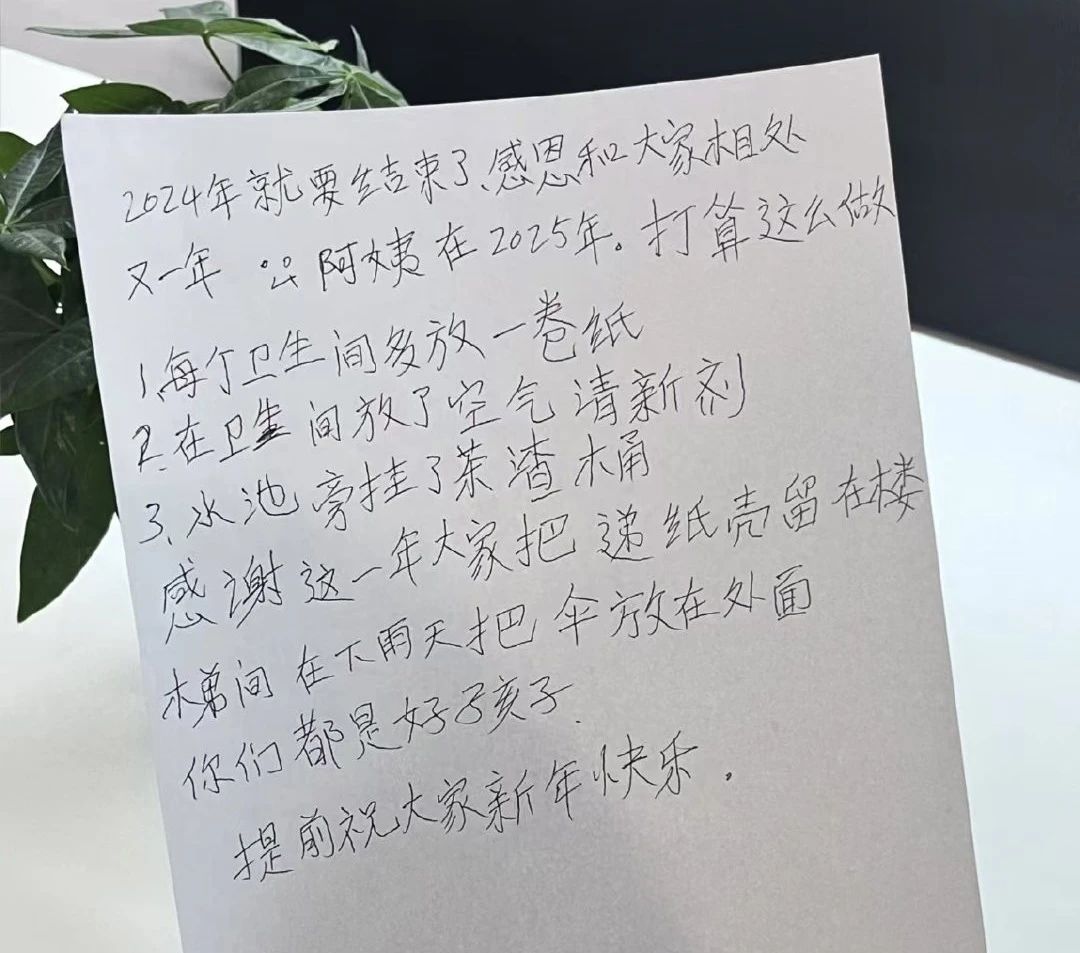 2024年就要结束了、感恩和大家相处
又一年 阿姨在2025年。打算这么做
1、每个卫生间多放一卷纸
2.在卫生间放了空气清新剂
3、水池旁挂了茶渣桶
感谢这一年大家把递纸壳留在楼
梯间在下雨天把伞放在外面
你们都是好孩子.
提前祝大家新年快乐.